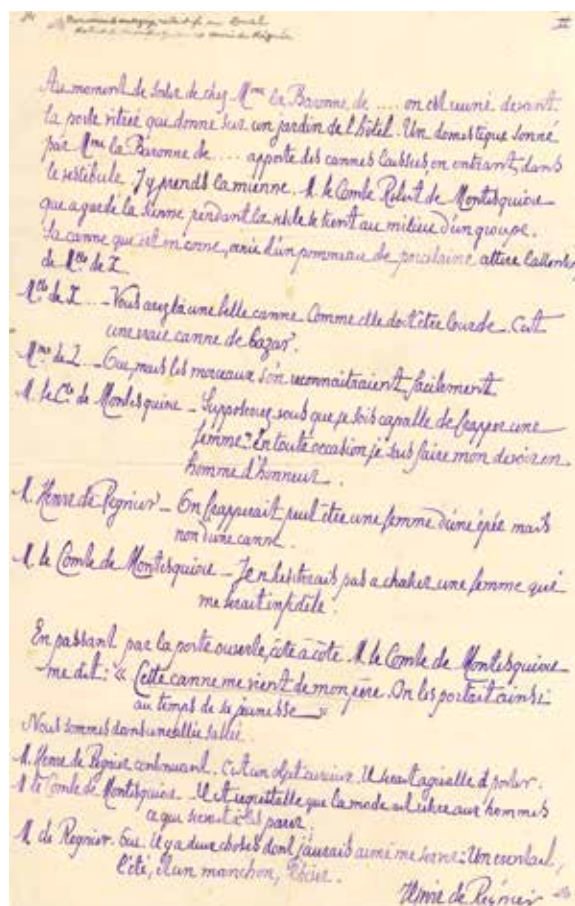 II
Au moment de sortir de chez Mme la Baronne de .... on est réuni devant
la porte vitrée qui donne sur un jardin de l'hôtel. Un domestique sonné
par Mme la Baronne de .... apporte des cannes laissées en entrant, dans
le vestibule. J'y prends la mienne. M. le Comte Robert de Montesquiou
qui a gardé la sienne pendant la visite se tient au milieu d'un groupe.
Sa canne qui est en corne, ornée d'un pommeau de porcelaine attire l'attention
de Mlle de Z.
Mlle de Z ... - Vous avez là une belle canne. Comme elle doit être lourde. C'est
une vraie canne de bazar.
Mme de Z. - Oui, mais les morceaux s'en reconnaitraient facilement
M. le Cte de Montesquiou - Supposeriez vous que je sois capable de frapper une
femme? En toute occasion je sais faire mon devoir en
homme d'honneur.
M. Henri de Regnier - On frapperait peut être une femme d'une épée mais
non d'une canne.
M. le Comte de Montesquiou - Je n'hésiterais pas à une femme qui
me serait infidèle.
En passant par la porte ouverte, côte à côte. M. le Comte de Montesquiou
me dit: « Cette canne me vient de mon père. On les portait ainsi
au temps de sa jeunesse »
Nous sommes dans une allée
M. Henri de Regnier continuant. C'est un objet curieux. Il serait agréable à porter.
M. le Comte de Montesquiou - Il est regrettable que la mode
aux hommes
parer.
M. de Regnier. Oui. Il y a deux choses dont j'aurais aimé me servir: Un éventail,
l'été, et un manchon, l'hiver.
Henri de Regnier